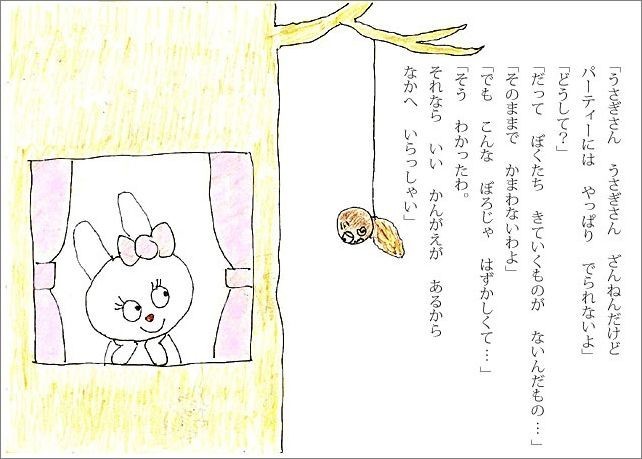 「うさぎさん　うさぎさん　ざんねんだけど
パーティーには　やっぱり　でられないよ」
「どうして？」
「だって　ぼくたち　きていくものが　ないんだもの…」
「そのままで　かまわないわよ」
「でも　こんな　ぼろじゃ　はずかしくて…」
「そう　わかったわ。
それなら　いい　かんがえが　あるから
なかへ　いらっしゃい」